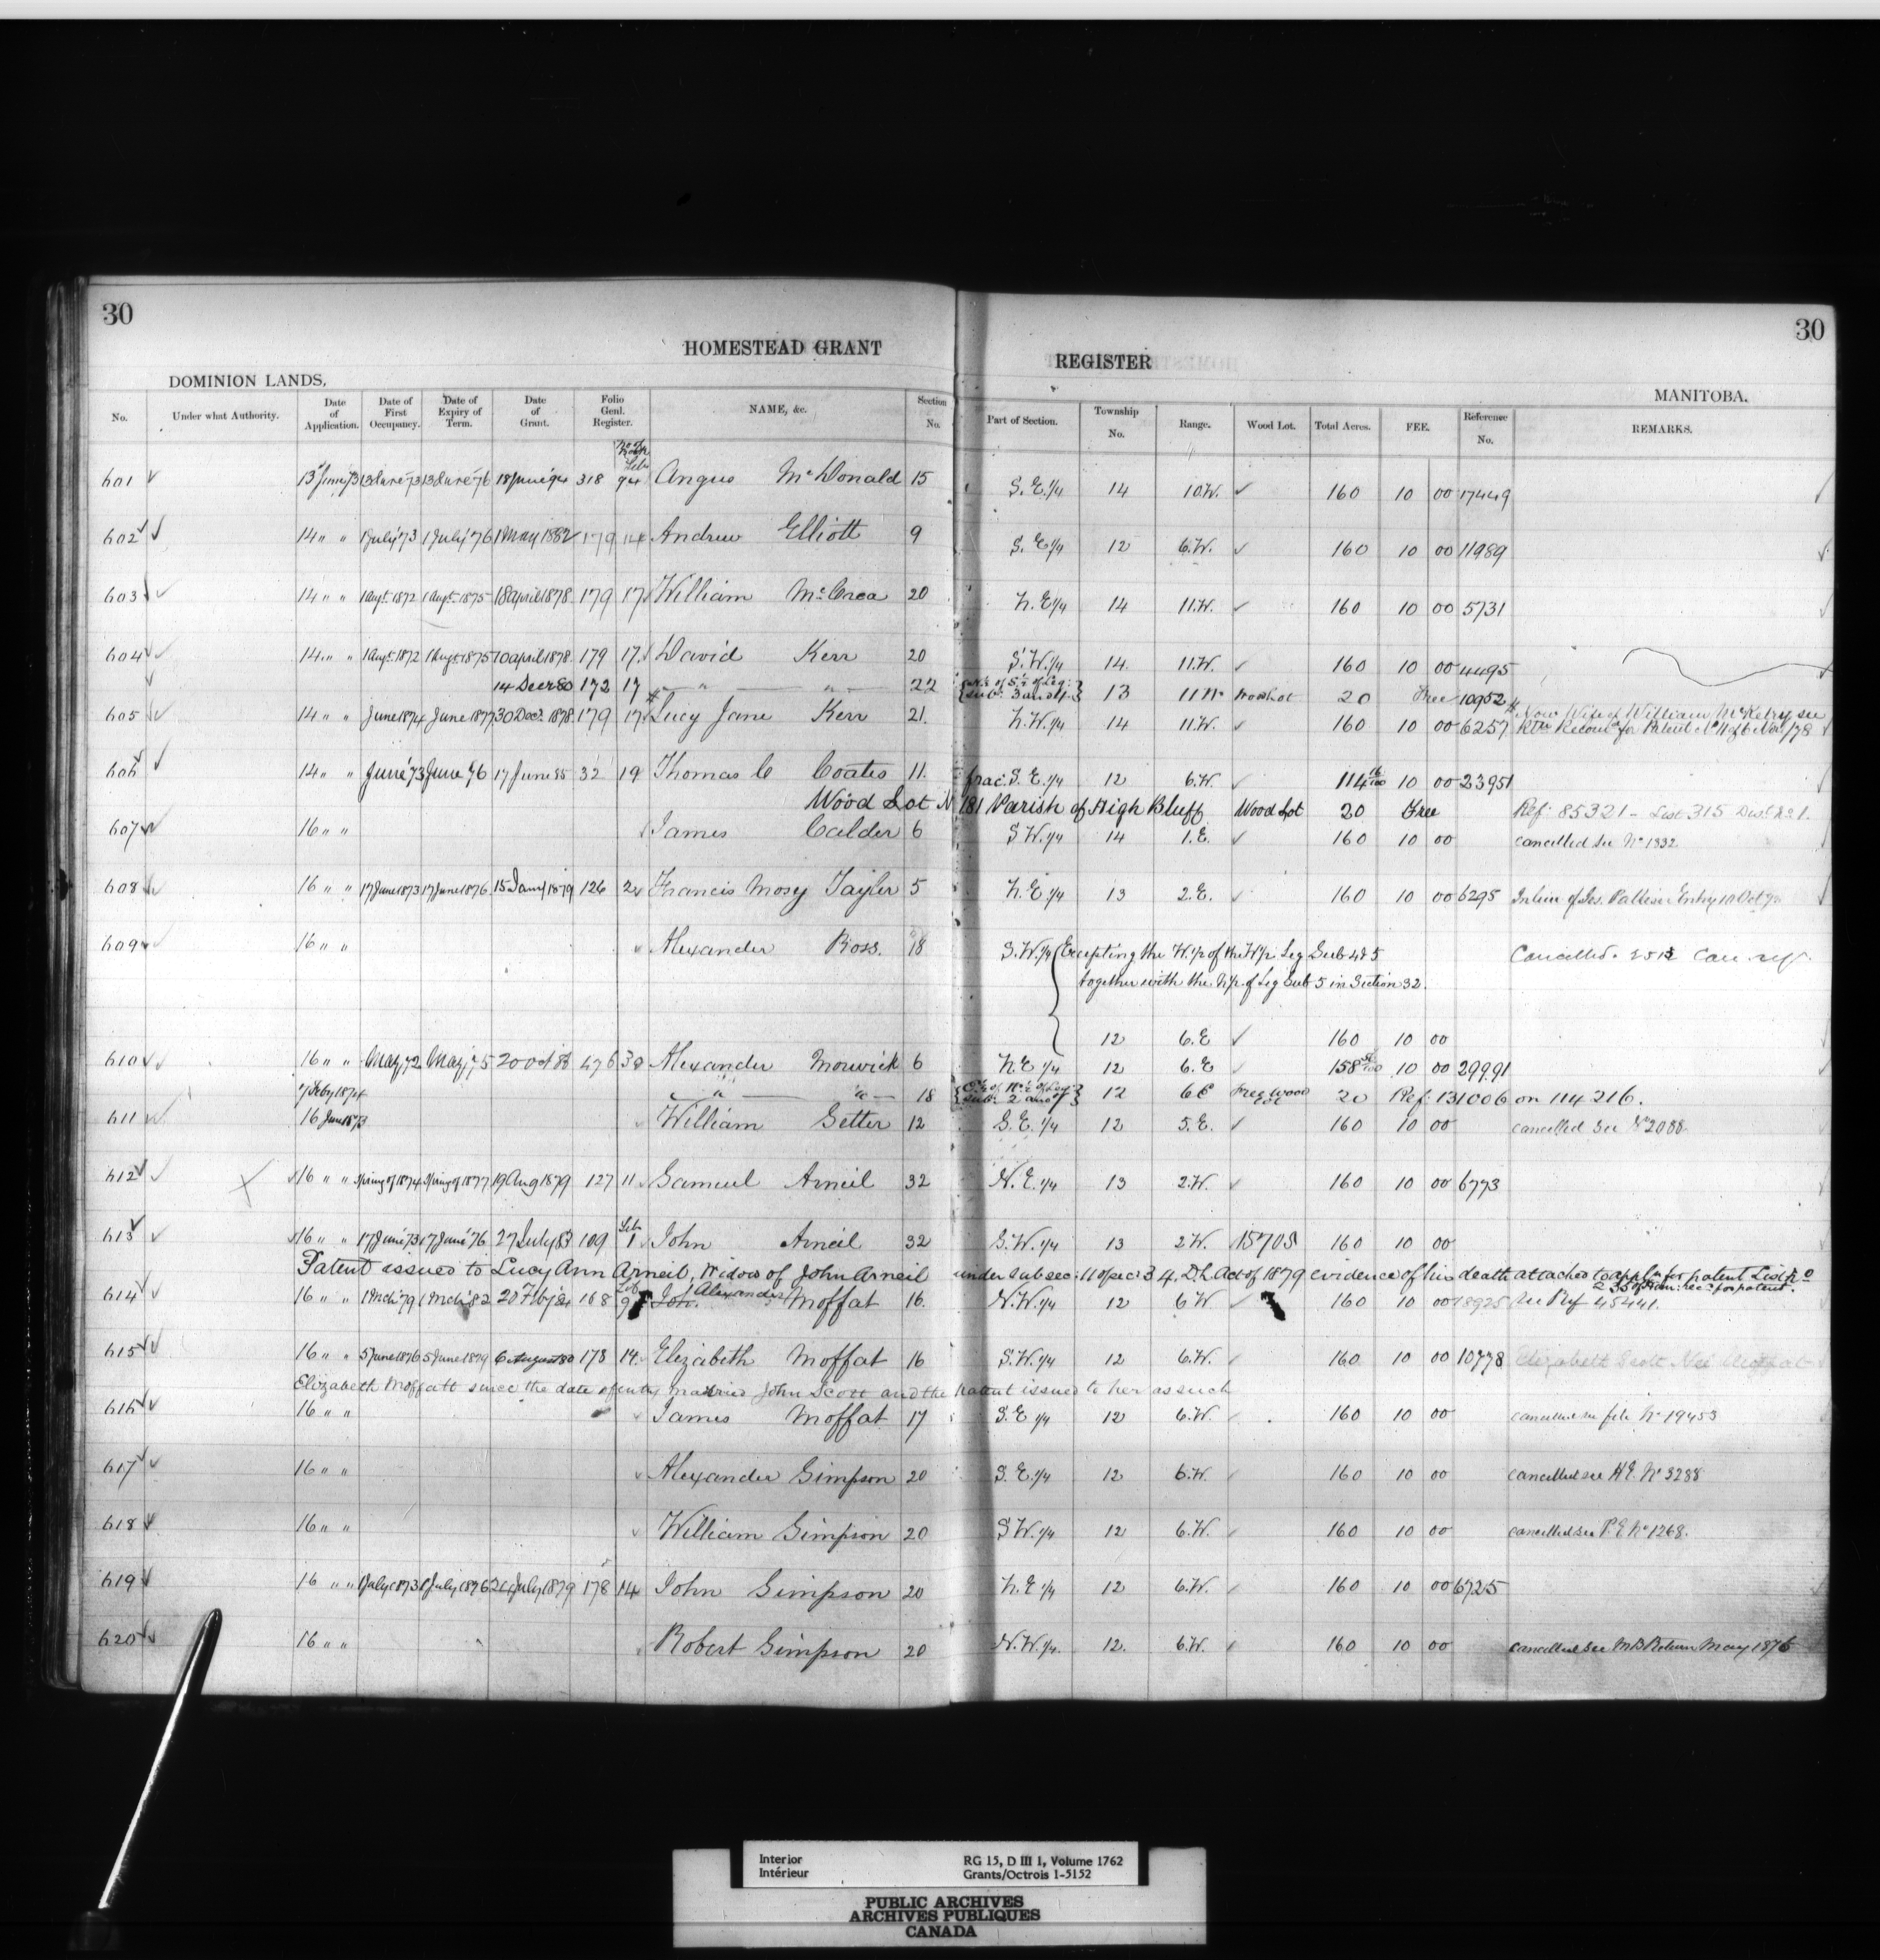 30
30
HOMESTEAD GRANT
REGISTER
DOMINION LANDS,
MANITOBA.
No. Under what Authority. Date of Application. Date of First Occupancy. Date of Expiry of Term. Date of Grant. Folio Genl. Register. NAME, &c. Section No. Part of Section. Township No. Range. Wood Lot. Total Acres. FEE. Reference No. REMARKS.
601 13 June 73 13 June 73 13 June 76 18 June 94 318 94 Angus McDonald 15 S.E.1/4 14 10.W. 160 10 00 17449
602 14 " " 1 July 73 1 July 76 1 May 1882 179 14 Andrew Elliott 9 S.E1/4 12 6.W. 160 10 00 11989
603 14 " " 1 Augt. 1872 1 Augt. 1875 18 April 1878 179 17 William McCrea 20 N.E1/4 14 11.W. 160 10 00 5731
604 14 " " 1 Augt. 1872 1 Augt. 1875 10 April 1878 179 17 David Kerr 20 S.W.1/4 14 11.W. 160 10 00 4495
14 Decr 80 172 17 " " 22 13 11 W Wood Lot 20 Free 10952
605 14 " " June 1874 June 1877 30 Decr. 1878 179 17 Lucy Jane Kerr 21. N.W.1/4 14 11.W. 160 10 00 6257
Now Wife of William McKelvy see
606 14 " " June 73 June 76 17 June 85 32 19 Thomas C Coates 11. frac: S.E.1/4 12 6.W. 114 16/100 10 00 23951
Wood Lot N 181 Parish of High Bluff Wood Lot 20 Free Ref: 85321 - List 315 Dist. No 1.
607 16 " " James Calder 6 S W.1/4 14 1.E. 160 10 00 cancelled see No 1332.
608 16 " " 17 June 1873 17 June 1876 15 Jany 1879 126 2 Francis Mosy Tayler 5 N.E.1/4 13 2.E. 160 10 00 6295 In lieu of Jas.
609 16 " " Alexander Ross. 18 S.W.1/4 Excepting the W.1/2 of the W1/2 Leg Sub 4 & 5
Cancelled.
together with the N1/2 of Leg Sub 5 in Section 32.
12 6.E 160 10 00
610 16 " " May 72 May 75 20 Oct 86 476 30 Alexander Morwick 6 N.E 1/4 12 6.E 158 10 00 29991
7 Feby 1874 " " 18 12 6 E Free Wood Lot 20 Ref: 131006 on 114216.
611 16 June 1873 William Setter 12 S.E. 1/4 12 5.E. 160 10 00 cancelled see No 2088
612 16 " " Spring of 1874 Spring of 1877 19 Aug 1879 127 11 Samuel Arneil 32 N.E.1/4 13 2.W. 160 10 00 6773
613 16 " " 17 June 73 17 June 76 27 July 83 109 1 John Arneil 32 S.W.1/4 13 2 W. 15705 160 10 00
Patent issued to Lucy Ann Arneil, Widow of John Arneil under sub sec: 11 of sec: 34, D.L. Act of 1879 evidence of his death attached to appln for patent List No
235 of Hom: rec. for patent.
614 16 " " 1 Mch 79 1 Mch 82 20 Feby 84 168 9 Jon. Alexander Moffat 16. N.W.1/4 12 6 W 160 10 00 18925 See Ref 45441.
615 16 " " 5 June 1876 5 June 1879 6 August 80 178 14. Elizabeth Moffat 16 S.W.1/4 12 6.W. 160 10 00 10778 Elizabeth Scott Nee Moffat
Elizabeth Moffatt since the date of entry married John Scott and the patent issued to her as such
616 16 " " James Moffat 17 S.E 1/4 12 6.W. 160 10 00 cancelled see file No 19453
617 16 " " Alexander Simpson 20 S.E.1/4 12 6.W. 160 10 00 cancelled see H.E. No 3288
618 16 " " William Simpson 20 S W.1/4 12 6.W. 160 10 00 cancelled see P.E No 1268.
619 16 " " 1 July 1873 1 July 1876 24 July 1879 178 14 John Simpson 20 N.E 1/4 12 6.W. 160 10 00 6725
620 16 " " Robert Simpson 20 N.W.1/4. 12. 6.W. 160 10 00 cancelled see M B Return May 1876
Interior
Intérieur
RG 15, D III 1, Volume 1762
Grants/Octrois 1-5152
PUBLIC ARCHIVES
ARCHIVES PUBLIQUES
CANADA